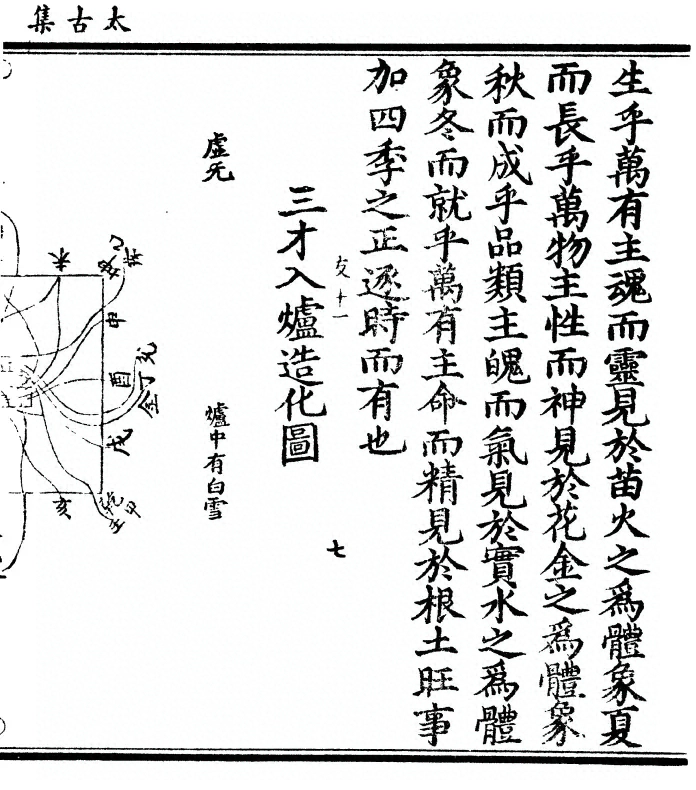 太古集
生乎萬有主魂而靈見於苗火之爲體象夏
而長乎萬物主性而神見於花金之爲體象
秋而成乎品類主魄而氣見於實水之爲體
象冬而就乎萬有主命而精見於根土旺事
加四季之正逐時而有也
友十一
七
三才入爐造化圖
虛无
爐中有白雪
未
申
酉
戌
亥
兌
丁
金
乾
甲